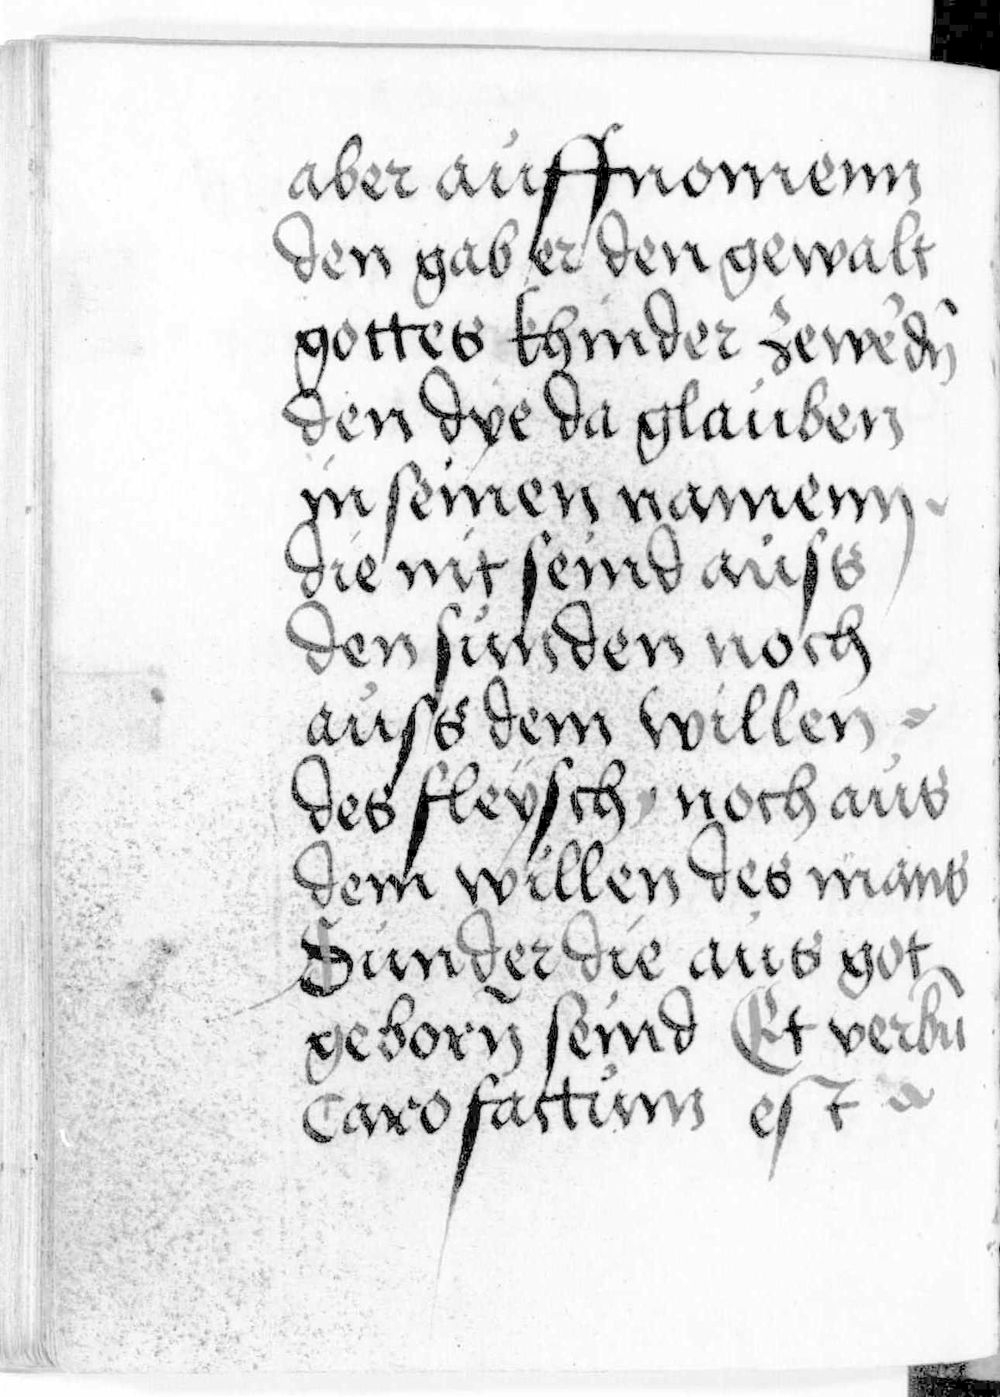 aber auffnomenn
den gab er den gewalt
gottes khinder zewe'dn̄
den dye da glauben
in seinen namenn
die nit seind auss
den sunden noch
auss dem willen
des fleysch noch aus
dem willen des mans
Sunder die aus got
geborn̄ seind Et verbū
Caro factum est